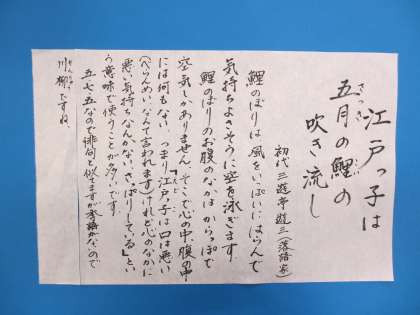 江戸っ子は
五月の鯉の
さつき
吹き流し
初代 三遊亭遊三(落語家)
鯉のぼりは風をいっぱいにはらんで
気持ちよさそうに空を泳ぎます。
鯉のぼりのお腹のなかはからっぽで
空気しかありません。そこで心の中、腹の中
には何もない、つまり江戸っ子は口は悪い
(べらんめい、なんて言われます)けれど心のなかに
悪い気持ちなんかない、さっぱりしている」とい
う意味で使うことが多いです。
五七五なので俳句と似てますが季語がなので
川柳ですね。
せんりゅう